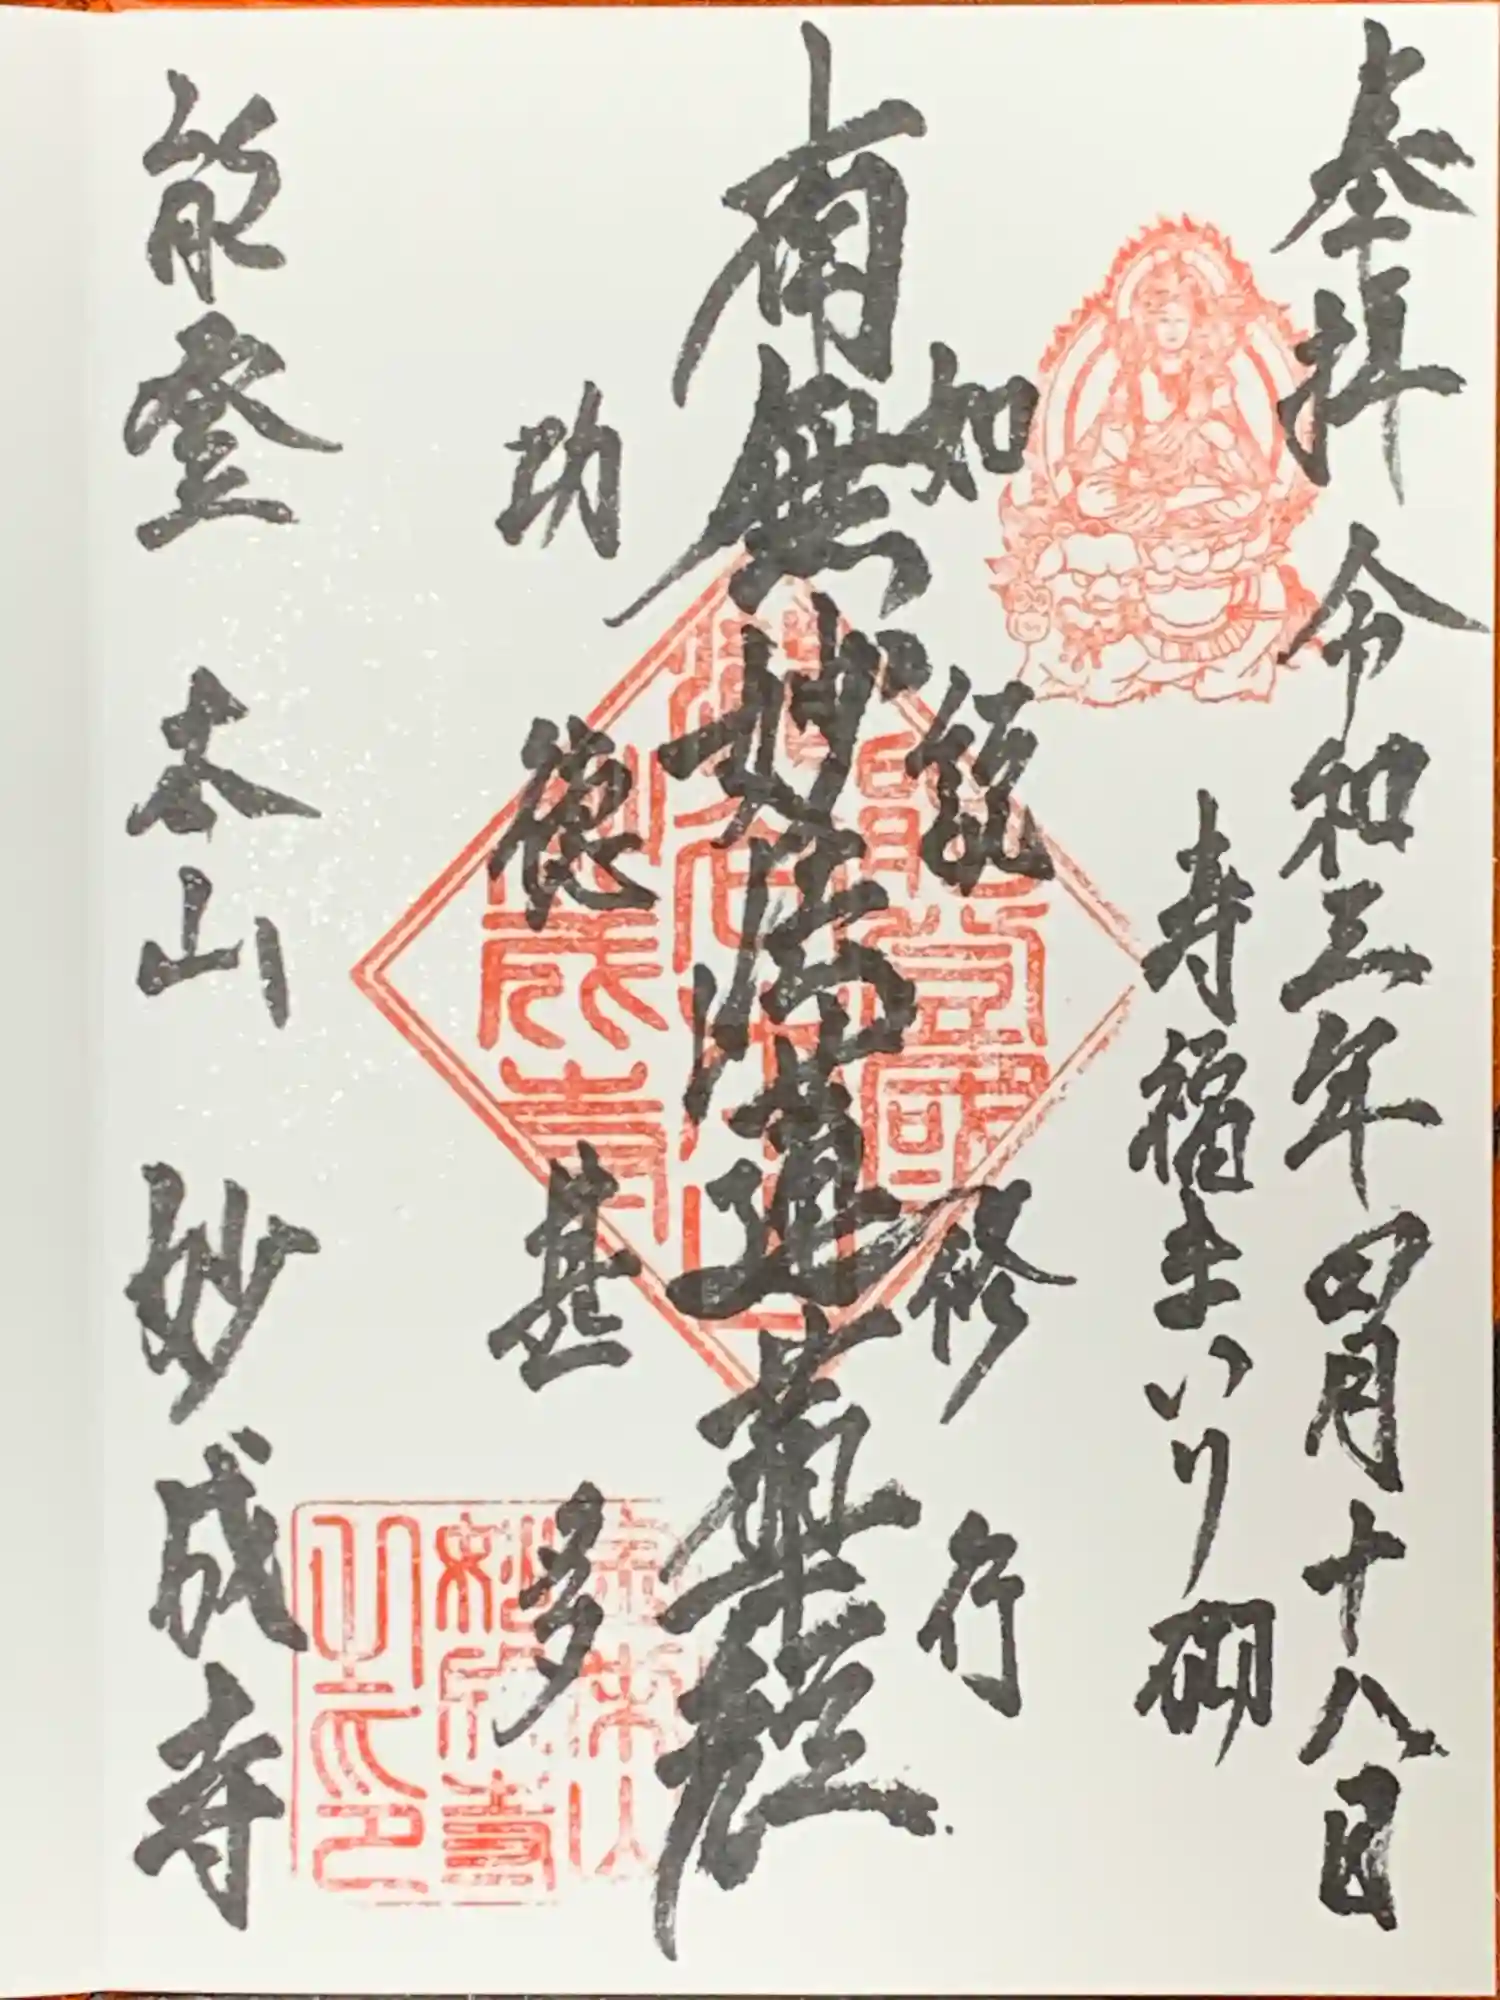 奉拝 令和三年四月十八日
寿福まいり
如説修行
南無妙法蓮華経
功徳甚多
能登 本山 妙成寺
金榮山
妙成寺
之印